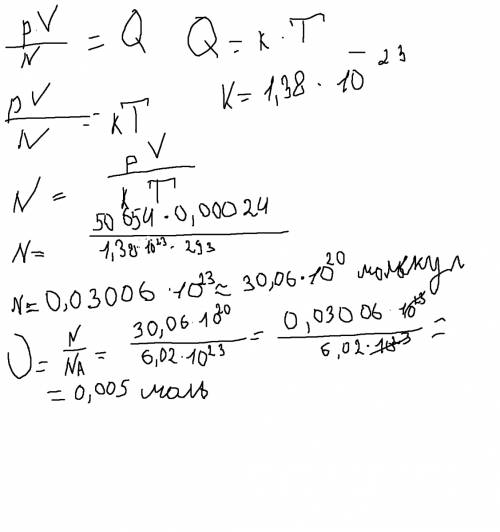 pV/N = Q   Q = k · T
K = 1,38 · 10^-23
pV/N = kT
N = pV/kT
N = 50 654 · 0,00024 / 1,38 · 10^23 · 293
N = 0,03006 · 10^23 ≈ 30,06 · 10^20 молькул
υ = N/NA = 30,06 · 10^20 / 6,02 · 10^23 = 0,03006 · 10^23 / 6,02 · 10^23 =
= 0,005 моль